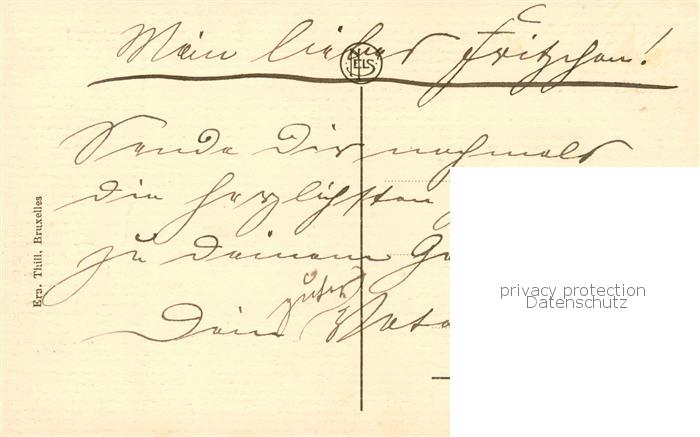 Mein lieber Fritzchen!
NELS
Sende Dir nochmals
die herzlichsten
zu Deinem
guter
Dein
Ern. Thill, Bruxelles
privacy protection
Datenschutz